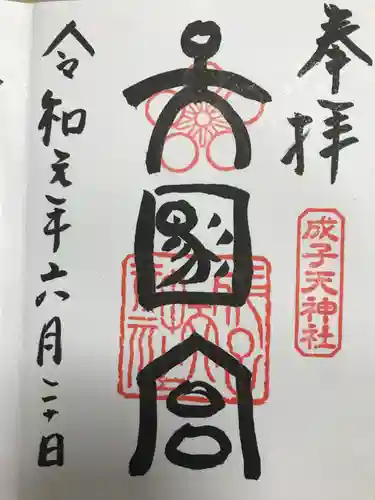 奉拝
成子天神社
天國宮
令和元年六月二十日